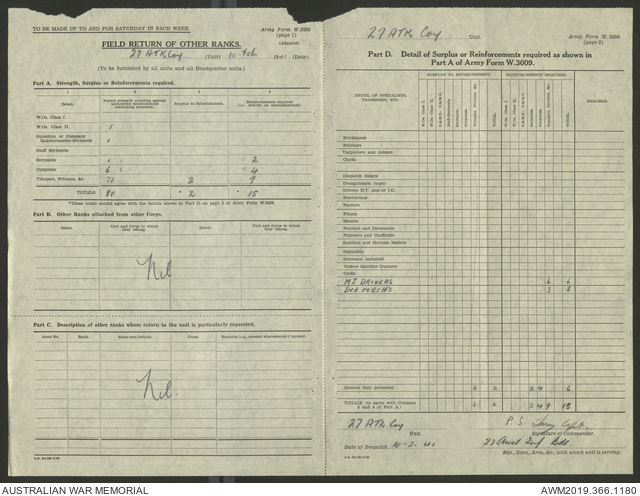 TO BE MADE UP TO AND FOR SATURDAY IN EACH WEEK.
Army Form W.3009
(page 1)
(Adapted)
FIELD RETURN OF OTHER RANKS.
27 ATK Coy (Unit) 10 Feb 1941 (Date)
(To be furnished by all units and all Headquarter units.)
Part A. Strength, Surplus or Reinforcements required.
1 2 3 4
Detail.
Surplus to Establishments.
Reinforcements required
W.Os. Class I.
W.Os. Class II. 1
Squadron or Company Quartermaster-Serjeants 1
Staff Serjeants
Serjeants 1 2
Corporals 6 4
Troopers, Privates, &c. 71 2 9
TOTALS 80 2 15
*These totals should agree with the details shown in Part D on page 2 of Army Form W.3009.
Part B. Other Ranks attached from other Corps.
Detail. Unit and Corps to which they belong. Detail. Unit and Corps to which they belong.
Nil
Part C. Description of other ranks whose return to the unit is particularly requested.
Army No. Rank. Name and Initials. Corps. Remarks
Nil.
27 ATK Coy Unit.
Army Form W.3009
(page 2)
Part D. Detail of Surplus or Reinforcements required as shown in
Part A of Army Form W.3009.
DETAIL OF SPECIALISTS, TRADESMEN, ETC.
SURPLUS TO ESTABLISHMENT.
REINFORCEMENTS REQUIRED.
REMARKS
W.Os. Class I.
W.Os. Class II.
Serjeants.
Corporals.
Troopers, Privates, &c.
TOTAL.
W.Os. Class I.
W.Os. Class II.
Serjeants.
Corporals.
Troopers, Privates, &c.
TOTAL.
Bricklayers
Butchers
Carpenters and Joiners
Clerks
Despatch Riders
Draughtsmen (topo)
Drivers H.T. and/or I.C.
Electricians
Farriers
Fitters
Masons
Painters and Decorators
Plumbers and Gasfitters
Saddlers and Harness Makers
Signallers
Storemen technical
Vickers Machine Gunners
Cooks
MT DRIVERS 6 6
DVR MECHS 3 3
General duty personnel 2 2 2 4 6
TOTALS (to agree with Columns 3 and 4 of Part A) 2 2 2 4 9 15
27 ATK Coy
Unit.
Signature of Commander.
Date of Despatch 10-2-41
Bde., Divn., Area, &c., with which unit is serving.
AUSTRALIAN WAR MEMORIAL
AWM2019.366.1180